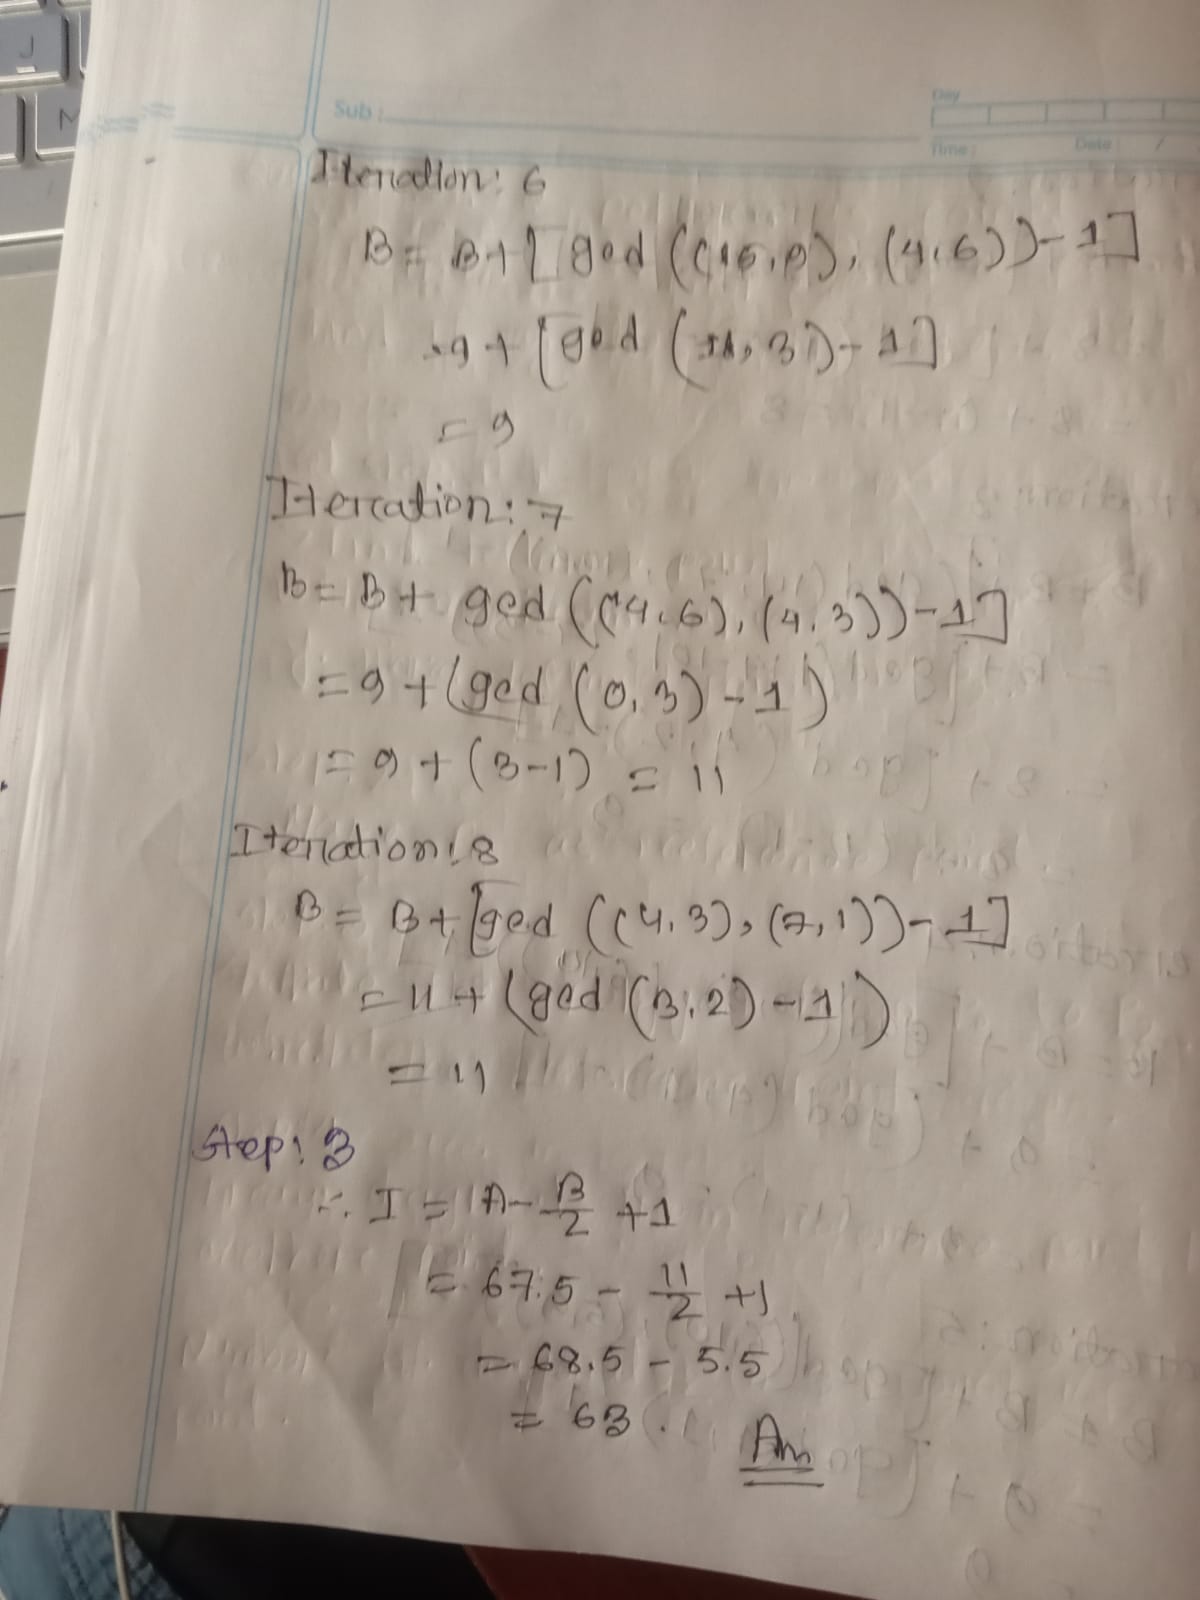 J
M
Sub :
Day
Time :
Date : /
Iteration: 6
B = B+[gcd ((15,9), (4,6))-1]
=9+[gcd (11, 3)-1]
= 9
Iteration: 7
B = B+ gcd ((4,6), (4,3))-1]
= 9 + (gcd (0, 3) - 1)
= 9 + (3-1) = 11
Iteration: 8
B = B+[gcd ((4,3), (7,1))-1]
= 11 + (gcd (3,2) - 1)
= 11
Step: 3
∴ I = A - B/2 + 1
= 67.5 - 11/2 + 1
= 68.5 - 5.5
= 63.
Ans